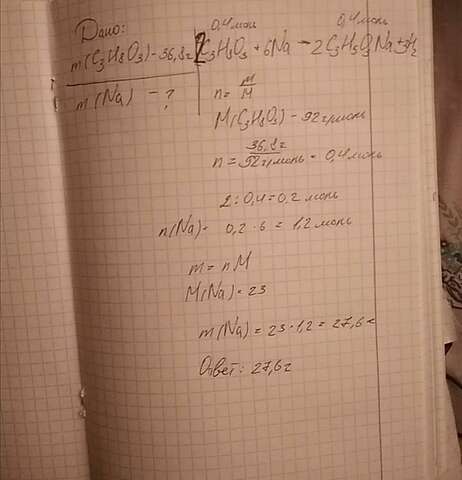 Дано:
m(C3H8O3) - 36,8г
m(Na) - ?
0,4 моль 0,4 моль
2C3H8O3 + 6Na - 2C3H5O3Na3 + 3H2
n = m/M
M(C3H8O3) - 92 г/моль
n = 36,8г/92г/моль = 0,4 моль
2 : 0,4 = 0,2 моль
n(Na) - 0,2 · 6 = 1,2 моль
m = nM
M(Na) = 23
m(Na) = 23 · 1,2 = 27,6 г
Ответ: 27,6 г